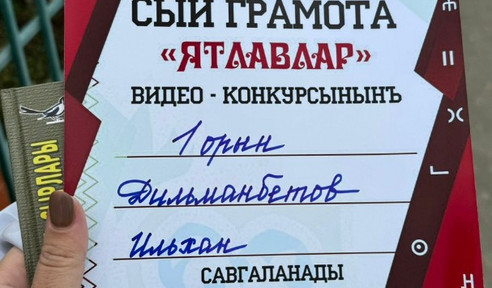 СЫЙ ГРАМОТА
«ЯТЛАВЛАР»
ВИДЕО - КОНКУРСЫНЫНЪ
1 орын
Дильманбетов
Ильхан
САВГАЛАНАДЫ